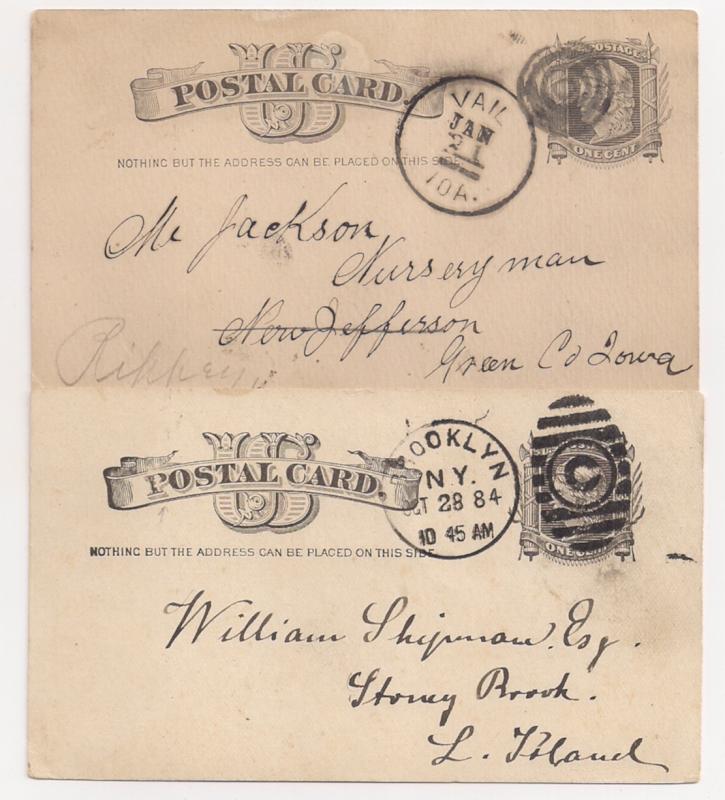 US
POSTAL CARD.
NOTHING BUT THE ADDRESS CAN BE PLACED ON THIS SIDE
VAIL
JAN
21
IOA.
POSTAGE
ONE CENT
Mr Jackson
Nurseryman
New Jefferson
Green Co Iowa
Rippey,
US
POSTAL CARD.
NOTHING BUT THE ADDRESS CAN BE PLACED ON THIS SIDE
OOKLYN
N.Y.
OCT 28 84
10 45 AM
C
ONE CENT
William Shipman. Esq.
Stoney Brook.
L. Island